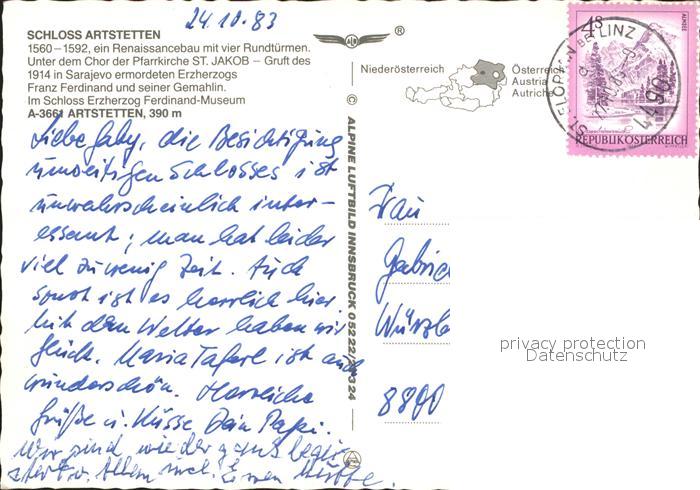 24.10.83
SCHLOSS ARTSTETTEN
1560–1592, ein Renaissancebau mit vier Rundtürmen.
Unter dem Chor der Pfarrkirche ST. JAKOB – Gruft des
1914 in Sarajevo ermordeten Erzherzogs
Franz Ferdinand und seiner Gemahlin.
Im Schloss Erzherzog Ferdinand-Museum
A-3661 ARTSTETTEN, 390 m
Liebe Gaby, die Besichtigung
umseitigen Schlosses ist
unwahrscheinlich inter-
essant; man hat leider
viel zu wenig Zeit. Auch
sonst ist es herrlich hier.
Mit dem Wetter haben wir
Glück. Maria Taferl ist auch
wunderschön. Herzliche
Grüße u. Küsse Dein Papi.
Wir sind wieder ganz begei
stert v. Allem
® 
Niederösterreich
Österreich
Austria
Autriche
© ALPINE LUFTBILD INNSBRUCK 0 52 22/
4S
REPUBLIK ÖSTERREICH
ST. FLORIAN BEI LINZ
4490
Frau
Gabrie
Würzb
8800
privacy protection
Datenschutz